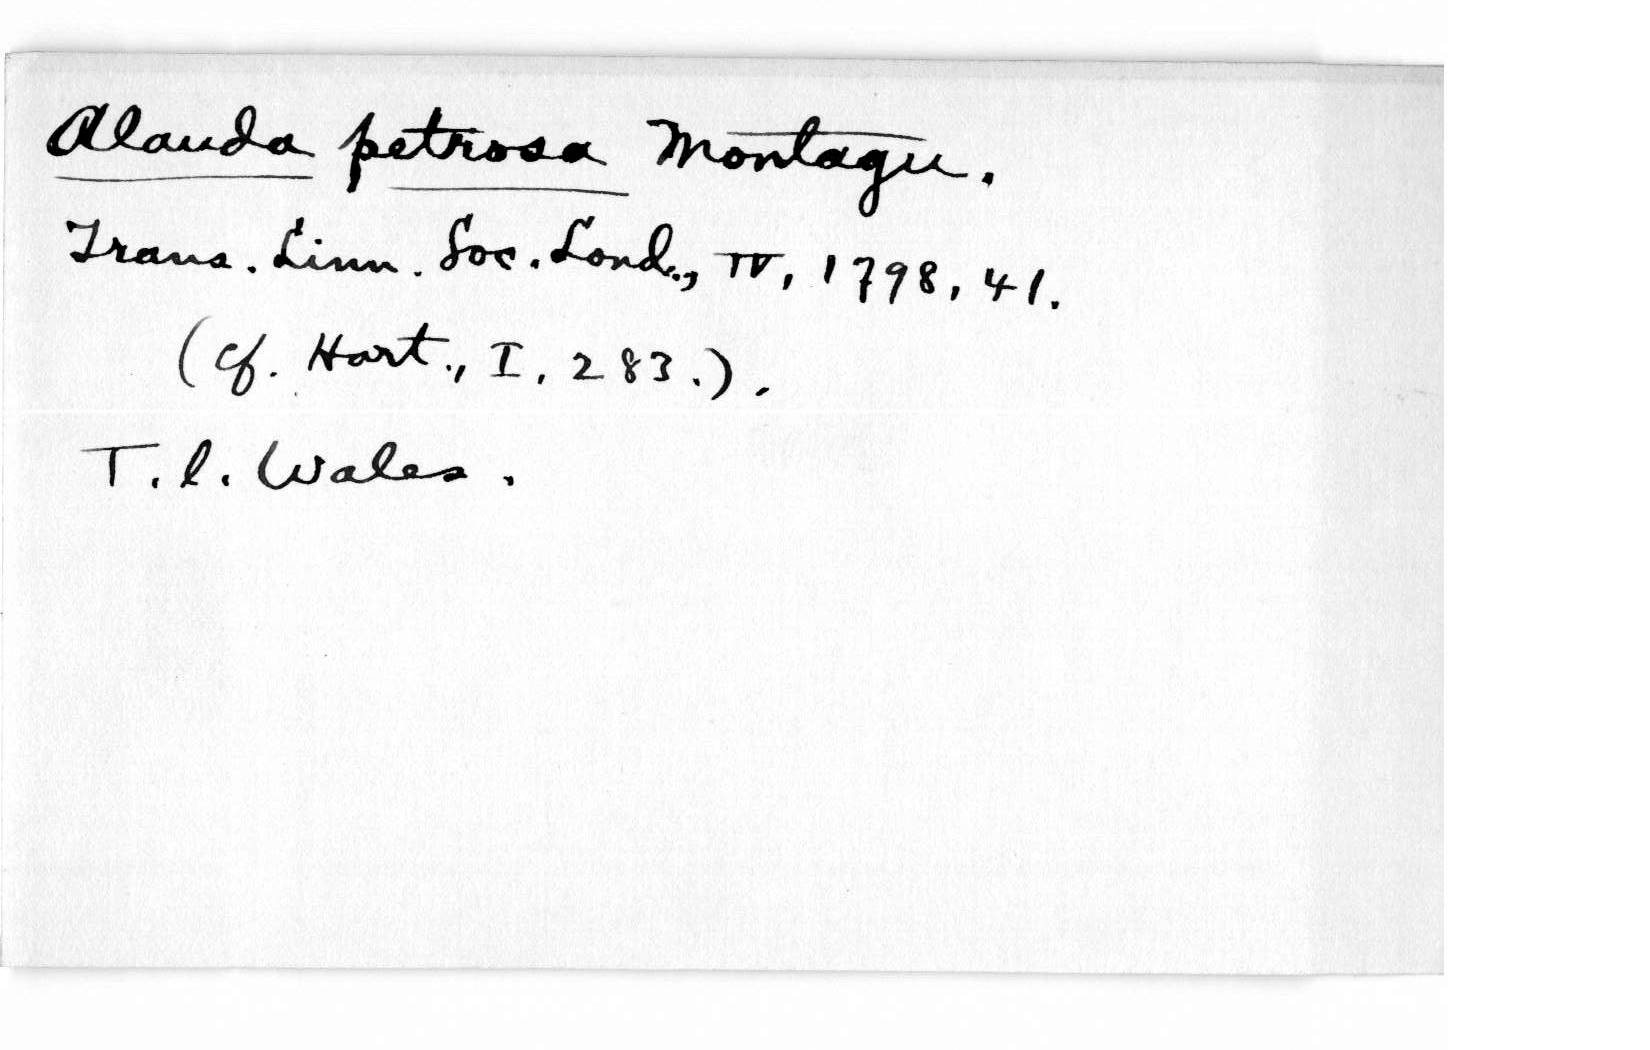 Alauda petrosa Montagu.
Trans. Linn. Soc. Lond., IV, 1798, 41.
(cf. Hart., I, 283.).
T.l. Wales.